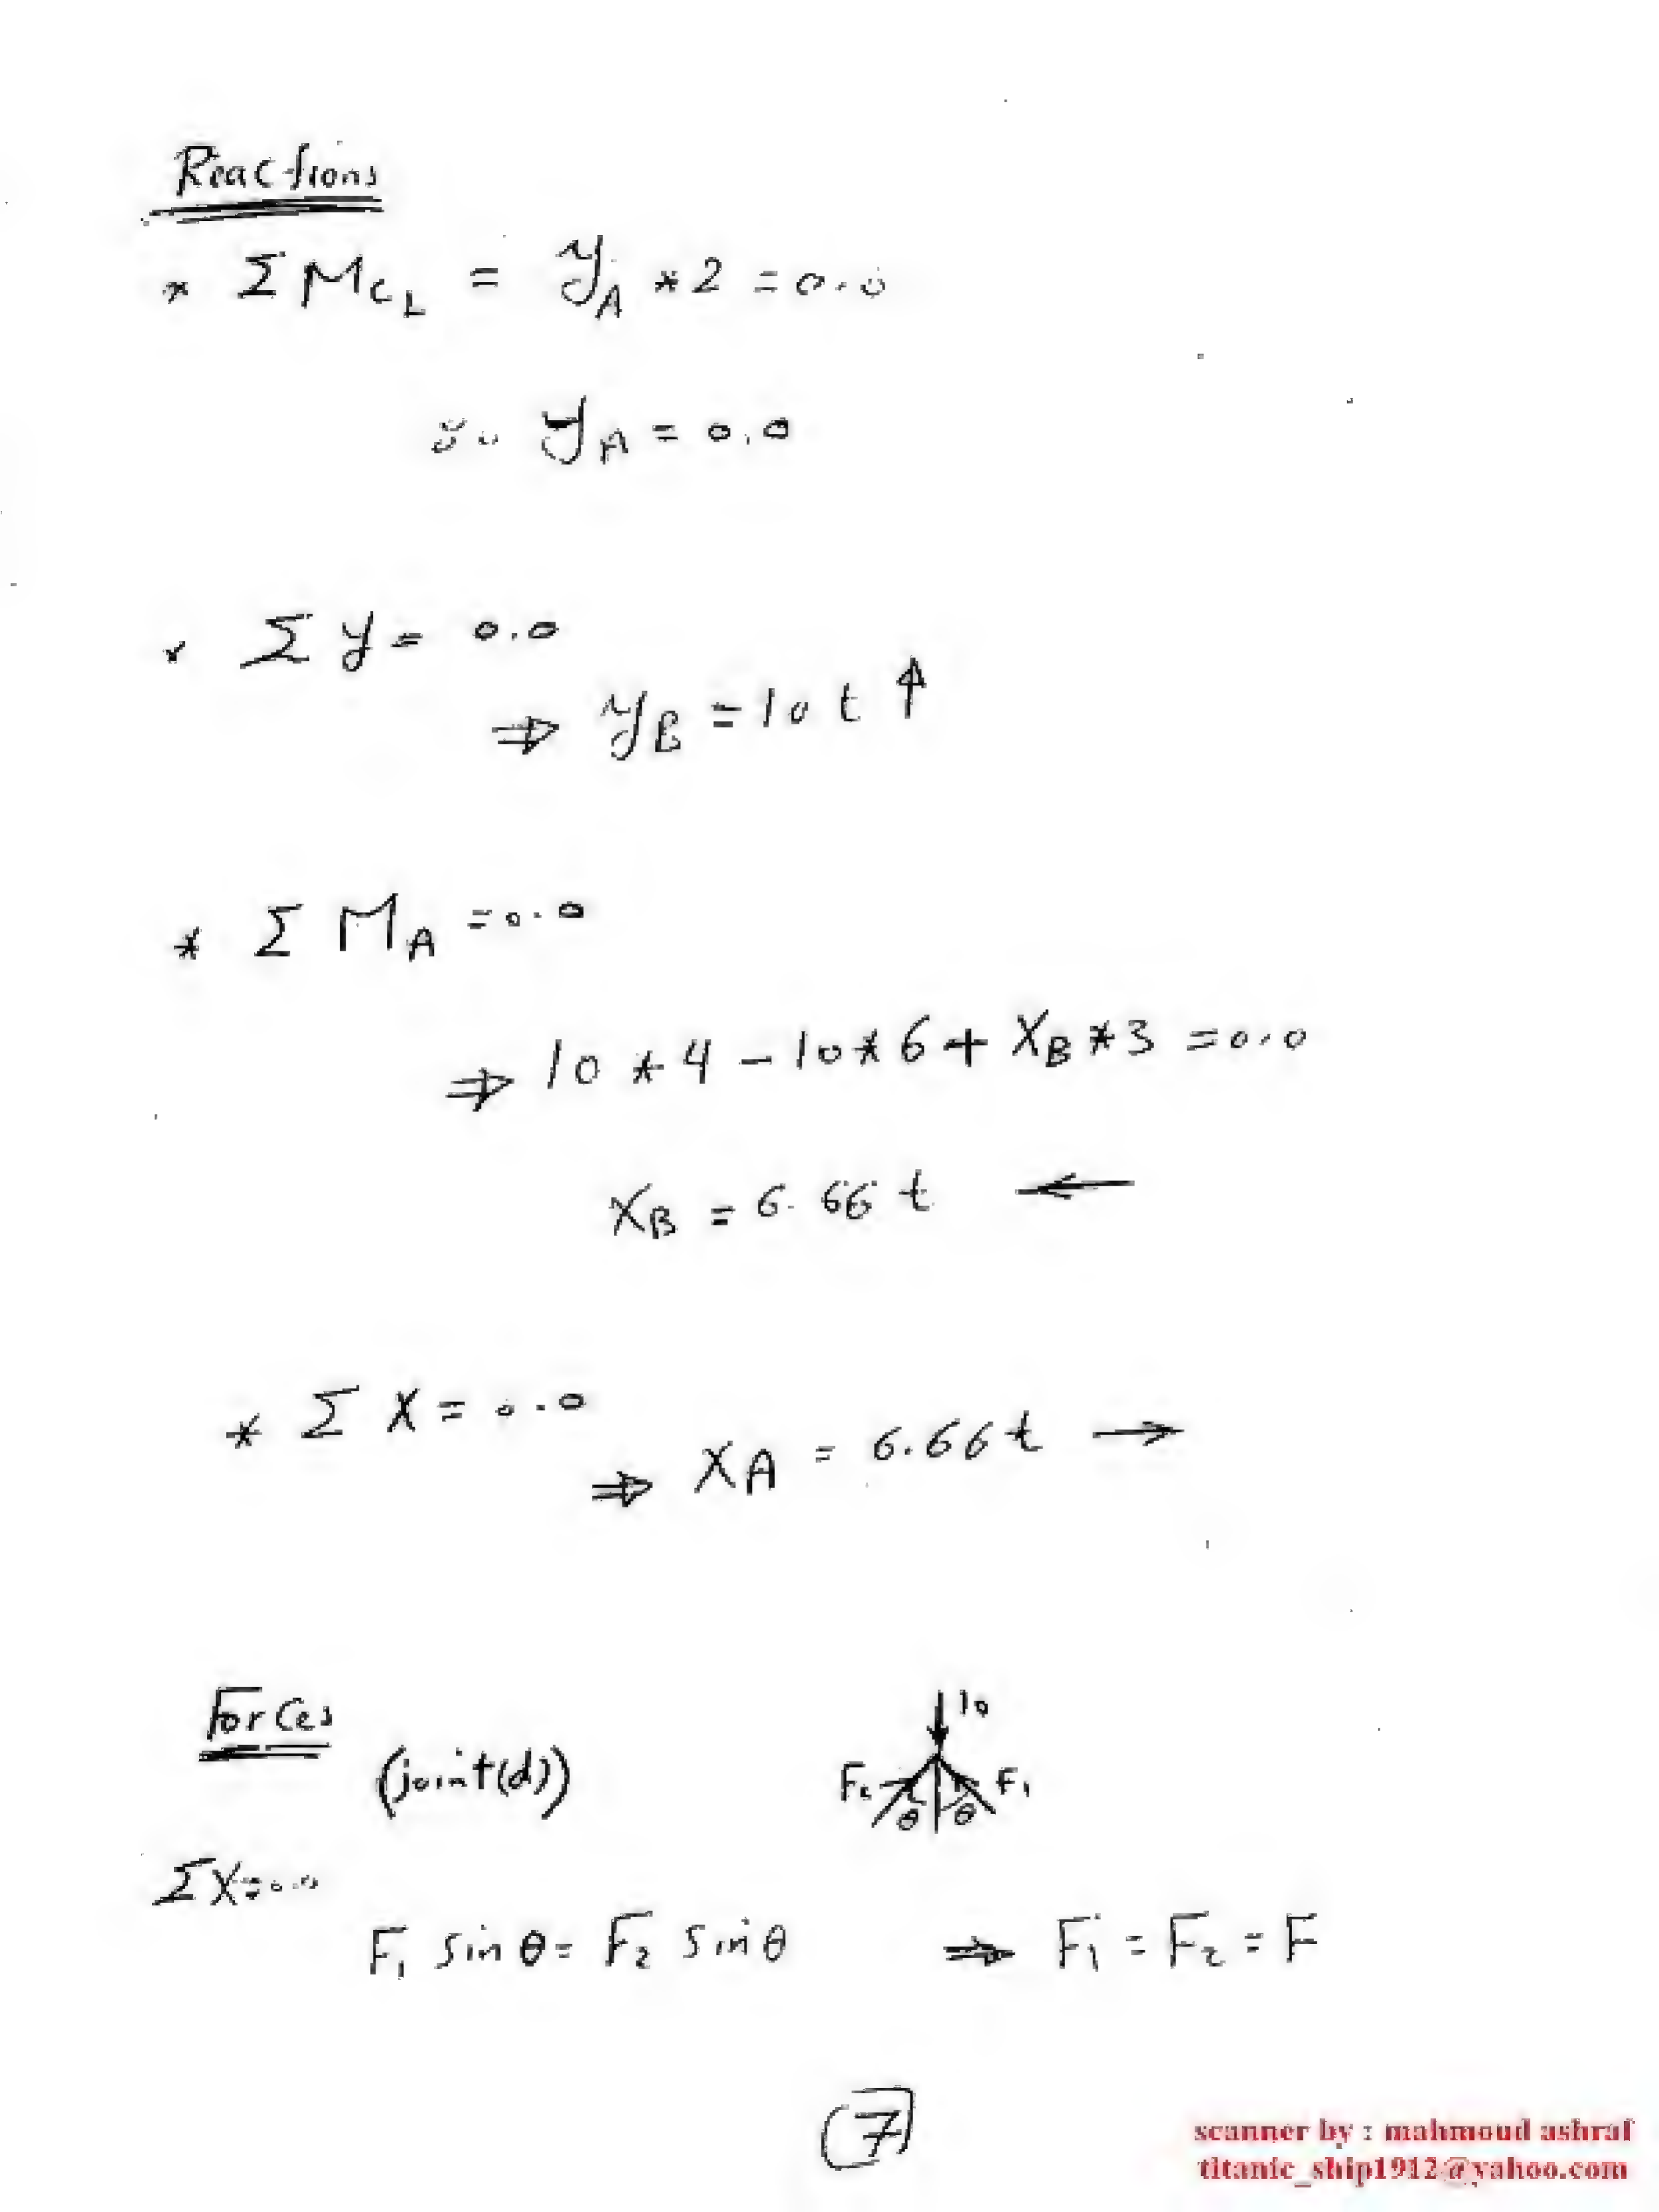 Reactions
* Σ M_CL = y_A * 2 = 0.0
∴ y_A = 0.0
* Σ y = 0.0
⇒ y_B = 10 t ↑
* Σ M_A = 0.0
⇒ 10 * 4 - 10 * 6 + X_B * 3 = 0.0
X_B = 6.66 t ←
* Σ X = 0.0
⇒ X_A = 6.66 t →
Forces
(joint(d))
10
F₂ F₁
θ θ
Σ X = 0.0
F₁ sin θ = F₂ sin θ ⇒ F₁ = F₂ = F
7
scanner by : mahmoud ashraf
titanic_ship1912@yahoo.com